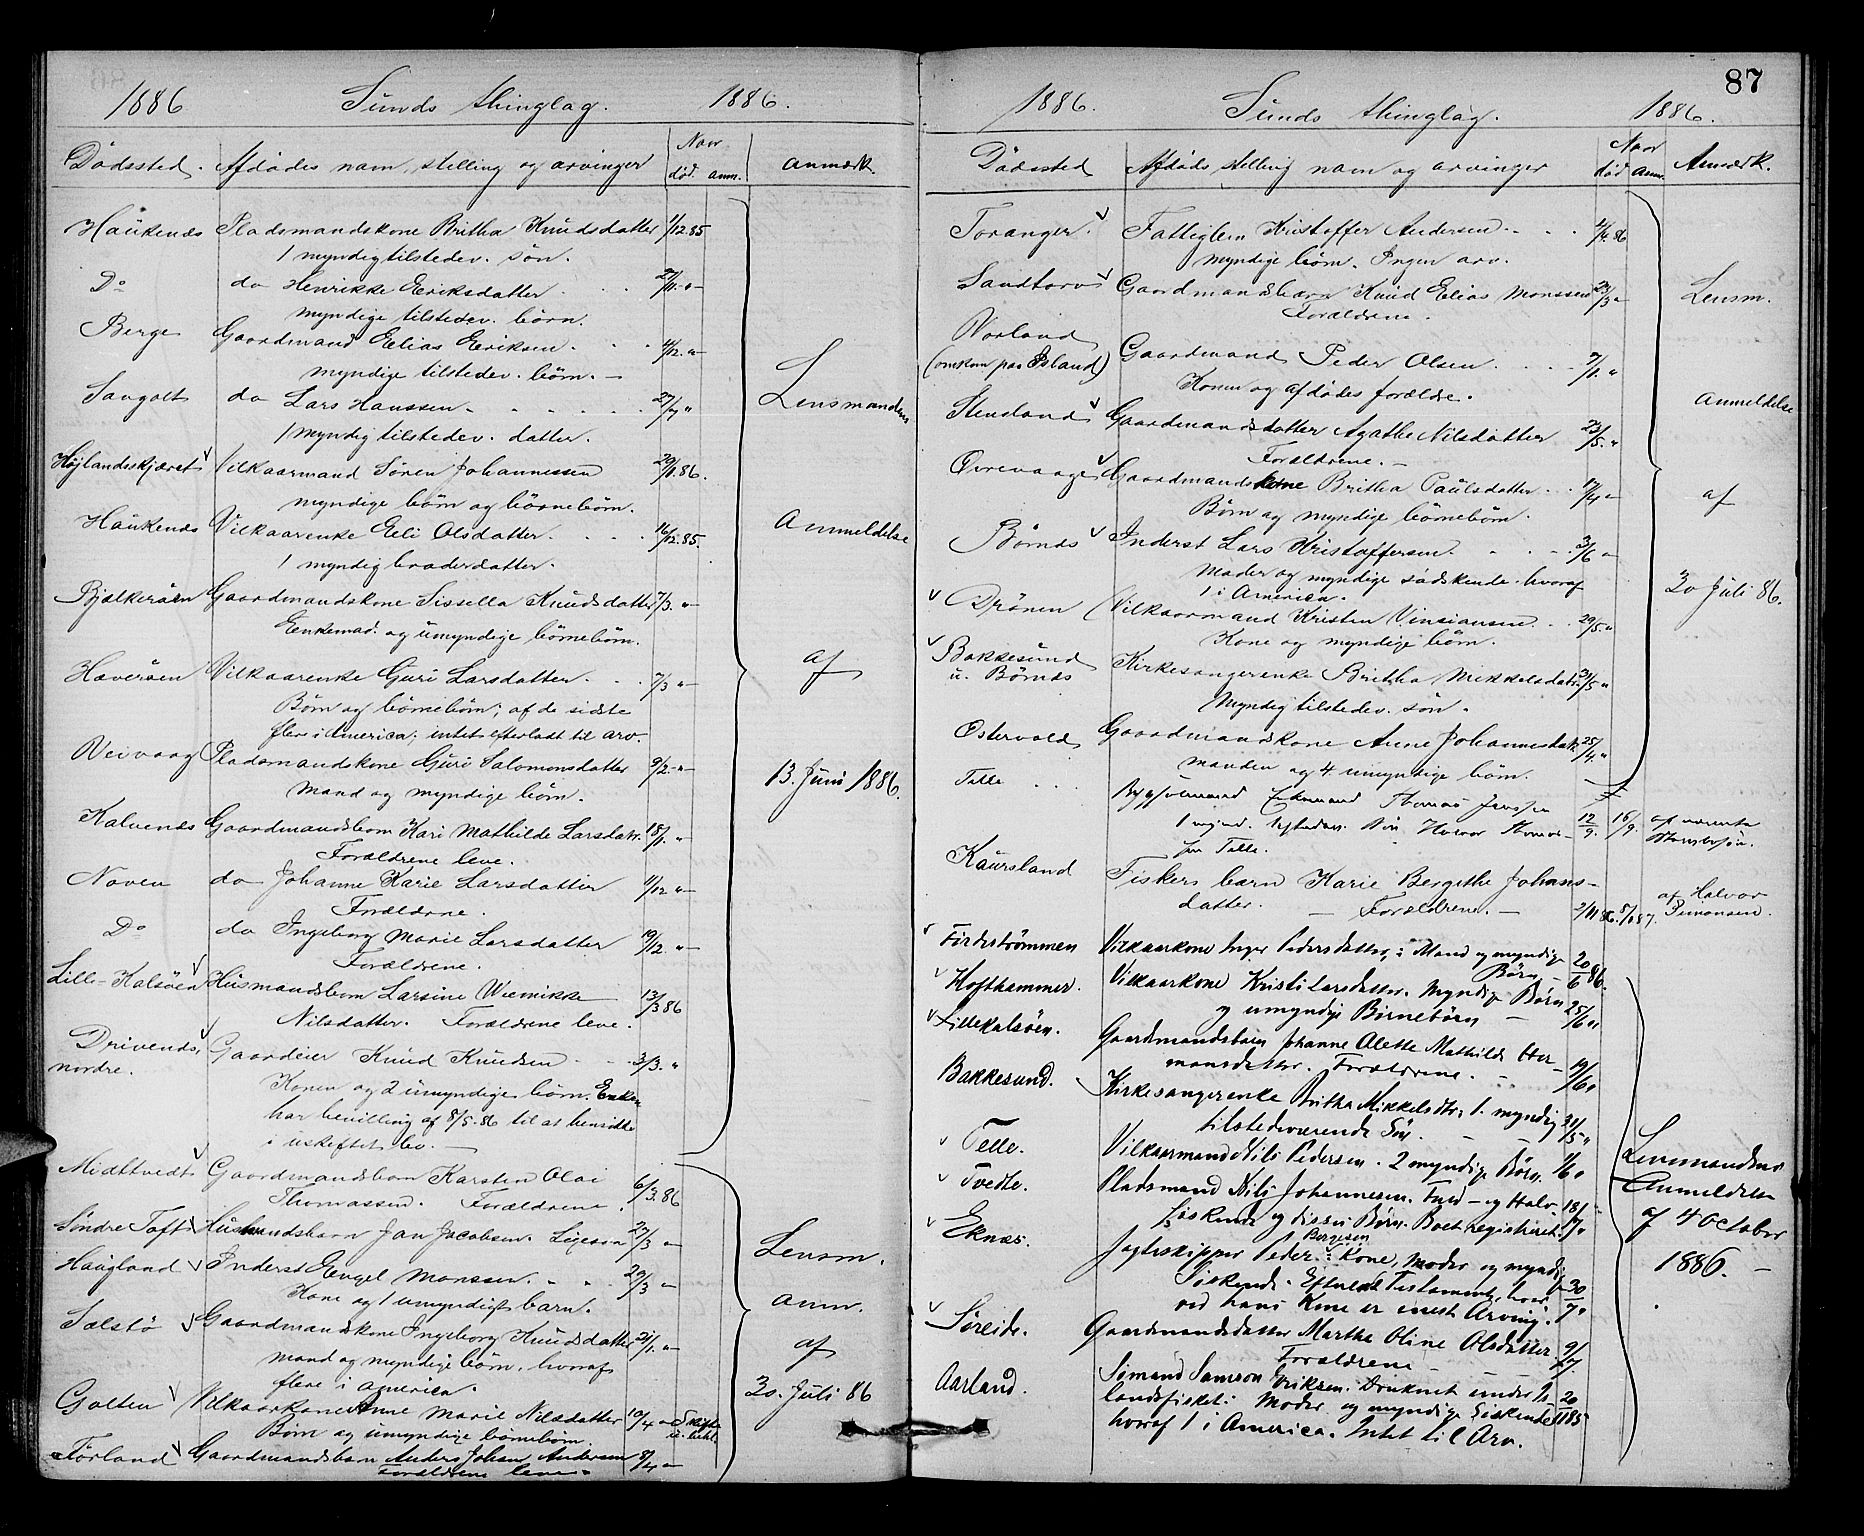 1886 Sunds thinglag. 1886.
Dødssted. Afdødes navn, stilling og arvinger Naar død. anm. Anmærk.
Haukenæs Pladsmandskone Britha Knudsdatter 1/12.85
1 myndig tilstedev. søn.
Do do Henrikke Eriksdatter
myndige tilstedev. børn.
Berge Gaardmand Elias Eriksen. 4/12. "
myndige tilstedev. børn. —
Sangolt do Lars Hanssen. 27/7 "
1 myndig tilstedev. datter.
Højlandsskjæret Vilkaarmand Sören Johannessen 20/1.86.
myndige börn og börnebörn.
Haukenæs Vilkaarenke Eli Olsdatter. 16/12.85.
1 myndig broderdatter.
Bjelkeröen Gaardmandskone Sissella Knudsdatter 7/3. "
Enkemad. og umyndige börnebörn.
Haveröen Vilkaarenke Guri Larsdatter. 7/3 "
Børn og børnebørn; af de sidste
flere i America; intet efterladt til arv.
Veivaag Pladsmandskone Guri Salomonsdatter 9/2. "
Mand og myndige børn.
Kalvenes Gaardmandsbarn Kari Mathilde Larsdatr. 18/1. "
Forældrene leve.
Noven do Johanne Karie Larsdatter 11/12 "
Forældrene.
Do do Ingeborg Marie Larsdatter 19/12. "
Forældrene.
Lille-Kalsøen Husmandsbarn Larsine Wiemikke 13/3 86
Nilsdatter. Forældrene leve.
Drivenes, nordre. Gaardeier Knud Knudsen 3/3. "
Konen og 2 umyndige børn. Enken
har bevilling af 8/5. 86 til at hensidde
i uskiftet bo. —
Midttvedt Gaardmandsbarn Karsten Olai 6/3. 86
Thomassen. Forældrene.
Søndre Toft Husmandsbarn Jan Jacobsen. Ligesaa 27/3 "
Haugland Inderst Engel Monssen. 29/3 "
Kone og 1 umyndigt barn.
Sælstö Gaardmandskone Ingeborg Knudsdatter 21/1. "
mand og myndige børn, hvoraf
flere i America.
Golten Vilkaarkone Anne Marie Nilsdatter 10/4 "
Børn og umyndige børnebørn
Förland Gaardmandsbarn Anders Johan Andersen 8/4 "
Forældrene leve.
Lensmandens
Anmeldelse
af
13. Juni 1886.
Lensm.
anm.
af
30. Juli 86
87
1886. Sunds thinglag. 1886.
Dödssted Afdøds stilling navn og arvinger Naar død Anm. Anmærk.
Toranger. Fattiglem Kristoffer Andersen 4/4. 86
myndige børn. Ingen arv.
Sandtorv Gaardmandsbarn Knud Elias Monssen 23/3 "
Forældrene.
Vorland
(omkom paa Island) Gaardmand Peder Olsen. 7/1. "
Konen og afdødes forældre.
Steinland Gaardmandsdatter Agathe Nilsdatter 23/5. "
Forældrene. —
Øvrevaage Gaardmandskone Britha Paulsdatter 17/4 "
Børn og myndige børnebørn.
Börnæs Inderst Lars Kristoffersen. 3/6 "
Moder og myndige sødskende hvoraf
1 i America.
Drönen Vilkaarmand Kristen Vinsiansen. 29/5. "
Kone og myndige børn.
Bakkesund
u. Börnæs Kirkesangerenke Britha Mikkelsdatr. 29/5 "
Myndig tilstedev. søn.
Østervold Gaardmandskone Anne Johannesdatr. 25/4. "
manden og 4 umyndige børn.
Telle Enkemand Thomas Jenssen 12/9. 16/9.
1 mynd. Søn
fra Telle.
Kaursland Fiskers barn Karie Bergithe Johans-
datter. — Forældrene. — 2/11 86. 5/1 87. af Halvor
Simonsen.
Fördeströmmen Vilkaarkone Inger Pedersdatter; Mand og myndige 20/6 86.
Børn —
Hofthammer. Vilkaarkone Kristi Larsdatter. Myndige Børn 25/6 "
og umyndige Børnebørn —
Lillekalsöen. Gaardmandsbarn Johanne Olette Mathilde Otter- 19/6 "
mansdatter. Forældrene.
Bakkesund. Kirkesangerenke Britha Mikkelsdtr; 1 myndig 29/5 "
tilstedeværende Søn.
Telle. Vilkaarmand Nils Pedersen. 2 myndige Børn. 1/6 "
Tvedte. Pladsmand Nils Johannesen. Fuld- og Halv- 18/7 "
søskende og disses Børn. Boet registreret.
Eknæs. Jagtskipper Peder Bergesen; Kone, Moder og myndige
Søskende. Efterladt Testament, hvor- 30/7 "
ved hans Kone er eneste Arving.
Søreide. Gaardmandsdatter Martha Oline Olsdatter. 9/7.
Forældrene —
Aarland. Sömand Samson Eriksen. Druknet under Is- 20/1 85
landsfisket. Moder og myndige Søskende
hvoraf 1 i America. Intet til Arv.
Lensm.
Anmeldelse
af
30 Juli 86.
Lensmandens
Anmeldelse
af 4 October
1886. —